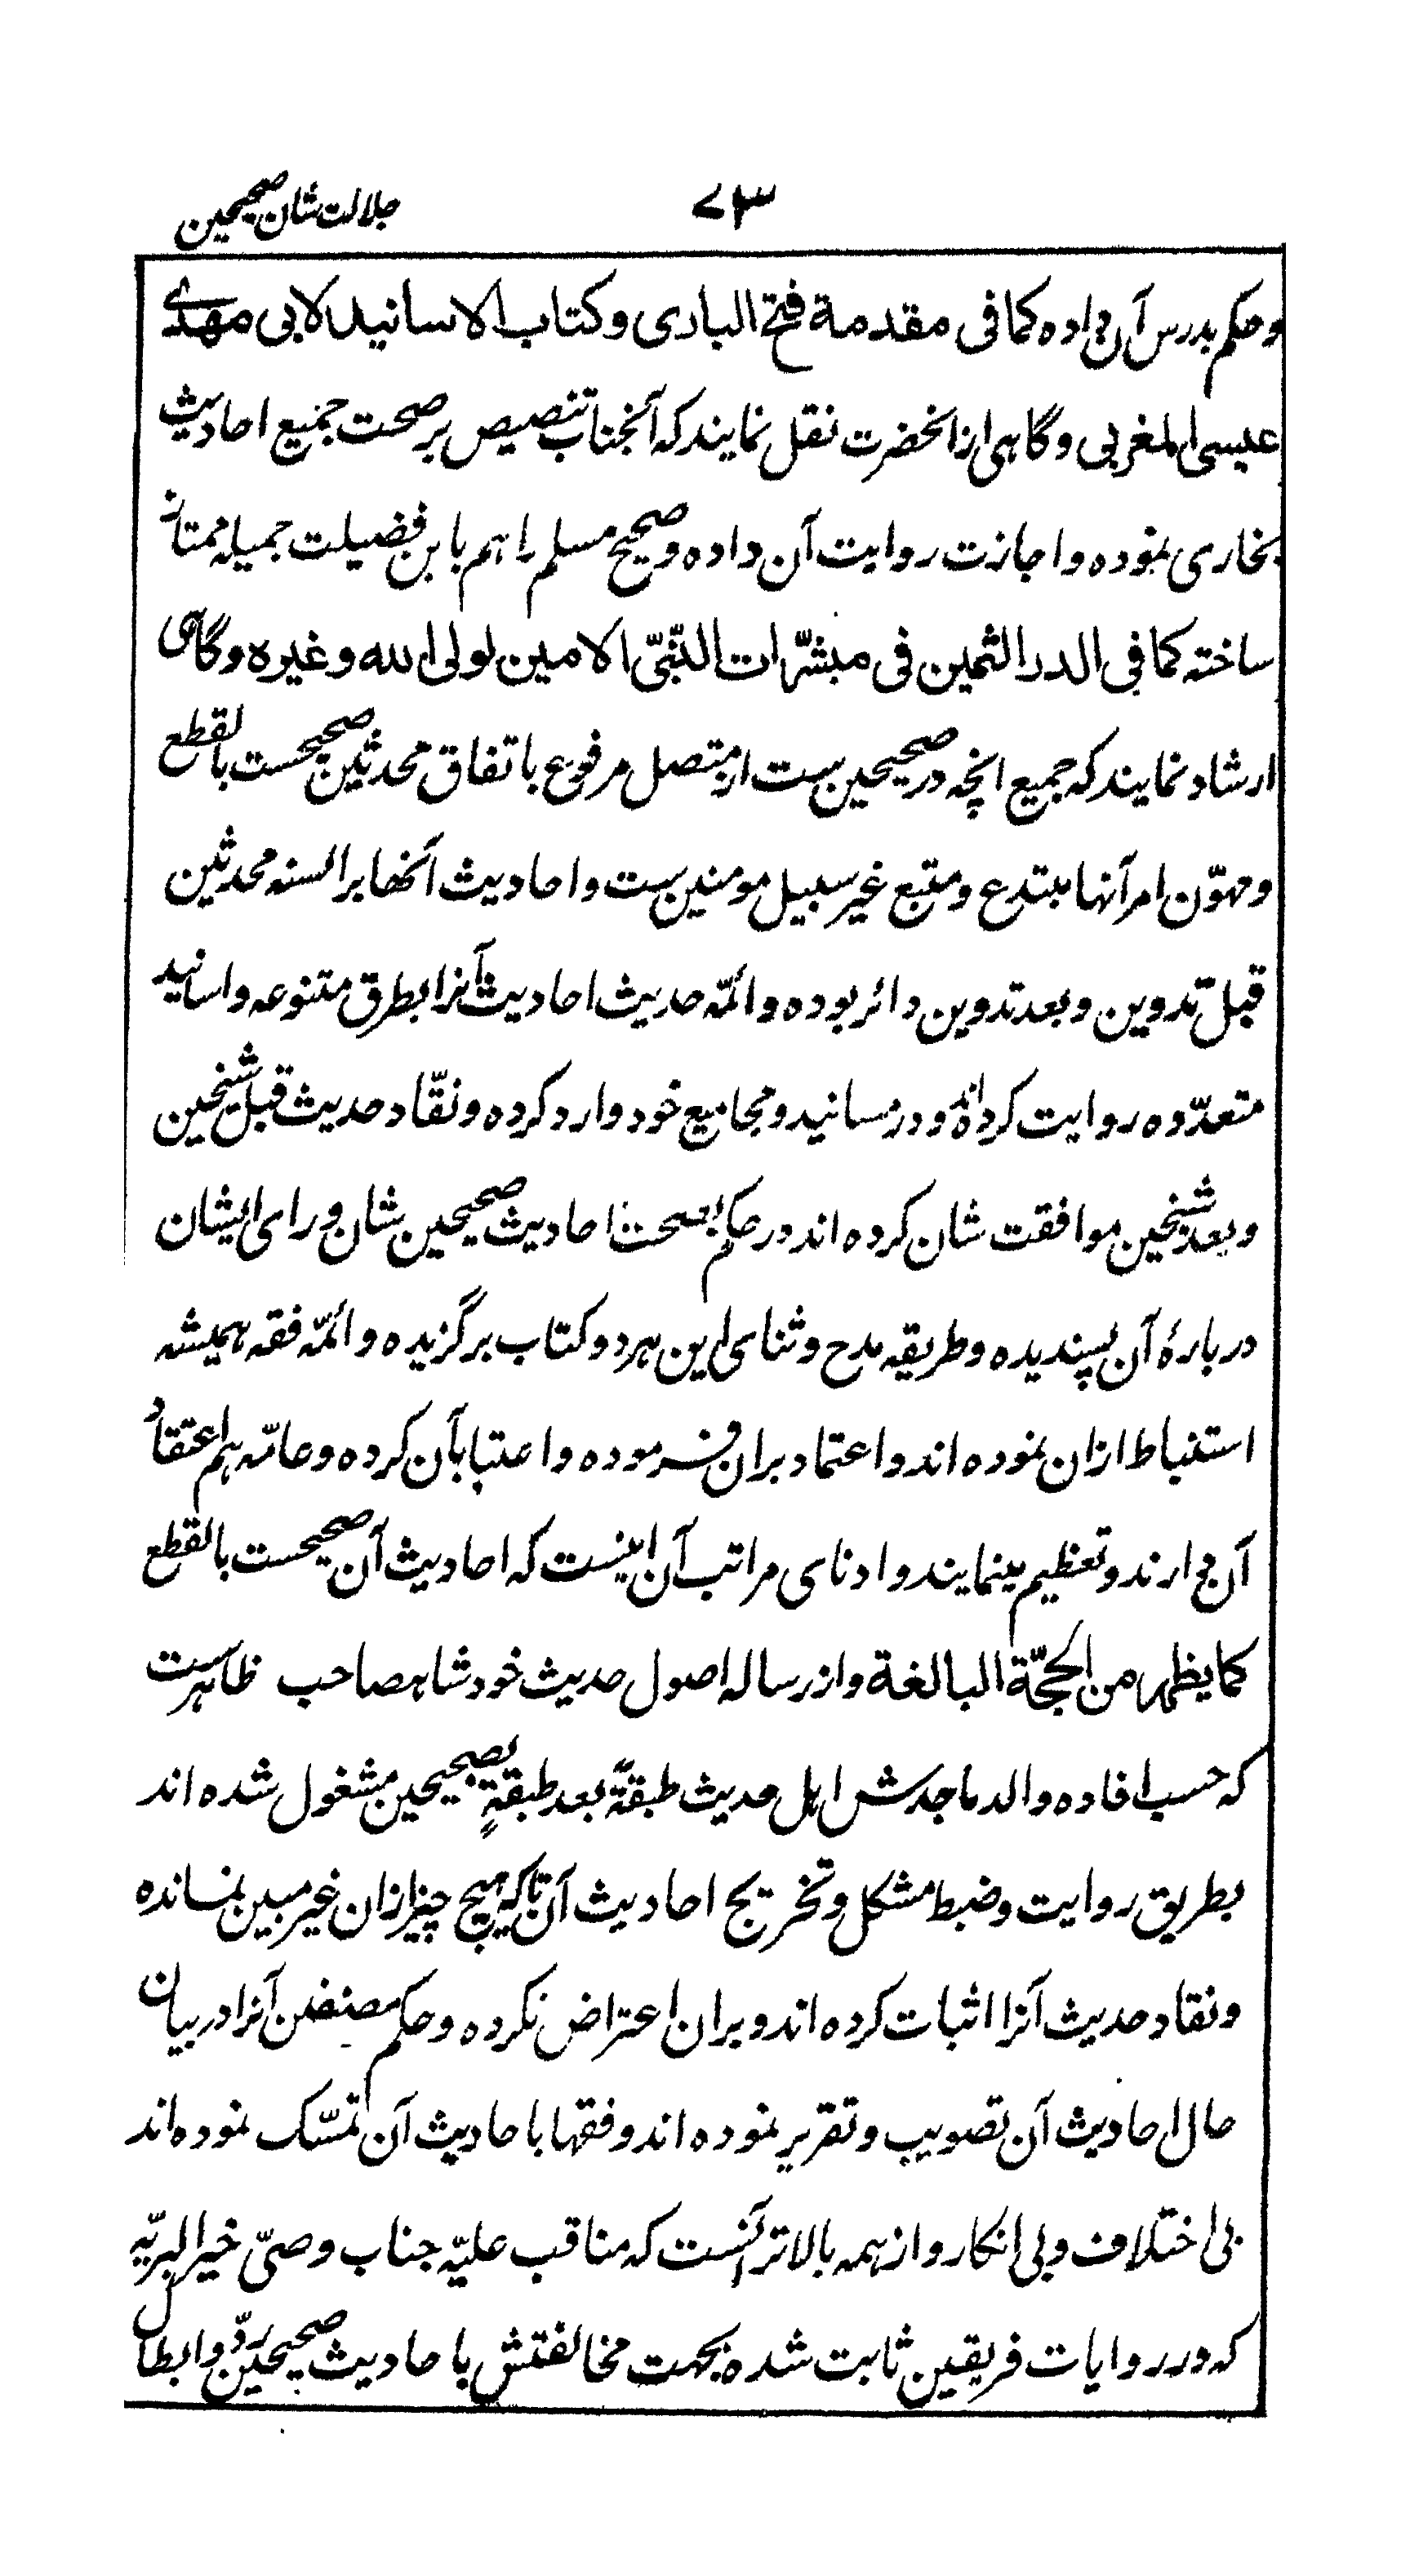 جلالت شان صحیحین
۷۳
و حکم بدرس آن داده کما فی مقدمة فتح الباری و کتاب الاسانید لابی مهدی
عیسی المغربی و گاهی از انحضرت نقل نمایند که آنجناب تنصیص بر صحت جمیع احادیث
بخاری نموده و اجازت روایت آن داده و صحیح مسلم را هم باین فضیلت جمیله ممتاز
ساخته کما فی الدر الثمین فی مبشّرات النّبیّ الامین لولی الله و غیره و گاهی
ارشاد نمایند که جمیع انچه در صحیحین ست از متصل مرفوع باتفاق محدثین صحیحست بالقطع
و مهوّن امر آنها مبتدع و متبع غیر سبیل مومنین ست و احادیث آنها بر السنه محدثین
قبل تدوین و بعد تدوین دائر بوده و ائمّه حدیث احادیث آنرا بطرق متنوعه و اسانید
متعدّده روایت کرده‌اند و در مسانید و مجامیع خود وارد کرده و نقّاد حدیث قبل شیخین
و بعد شیخین موافقت شان کرده اند در حکم بصحت احادیث صحیحین شان و رای ایشان
دربارۀ آن پسندیده و طریقه مدح و ثنای این هر دو کتاب برگزیده و ائمّه فقه همیشه
استنباط ازان نموده اند و اعتماد بران فرموده و اعتنا بآن کرده و عامّه هم اعتقاد
آن دارند و تعظیم مینمایند و ادنای مراتب آن اینست که احادیث آن صحیحست بالقطع
کما یظهر من الحجّة البالغة و از رساله اصول حدیث خود شاهصاحب ظاهرست
که حسب افاده والد ماجدش اهل حدیث طبقةً بعد طبقةٍ بصحیحین مشغول شده اند
بطریق روایت و ضبط مشکل و تخریج احادیث آن تا آنکه هیچ چیز ازان غیر مبین نمانده
و نقاد حدیث آنرا اثبات کرده اند و بران اعتراض نکرده و حکم مصنفین آنرا در بیان
حال احادیث آن تصویب و تقریر نموده اند و فقها باحادیث آن تمسّک نموده اند
بی اختلاف و بی انکار و از همه بالاتر آنست که مناقب علیّه جناب وصیّ خیر البریّه
که در روایات فریقین ثابت شده بجهت مخالفتش با احادیث صحیحین ردّ و ابطال